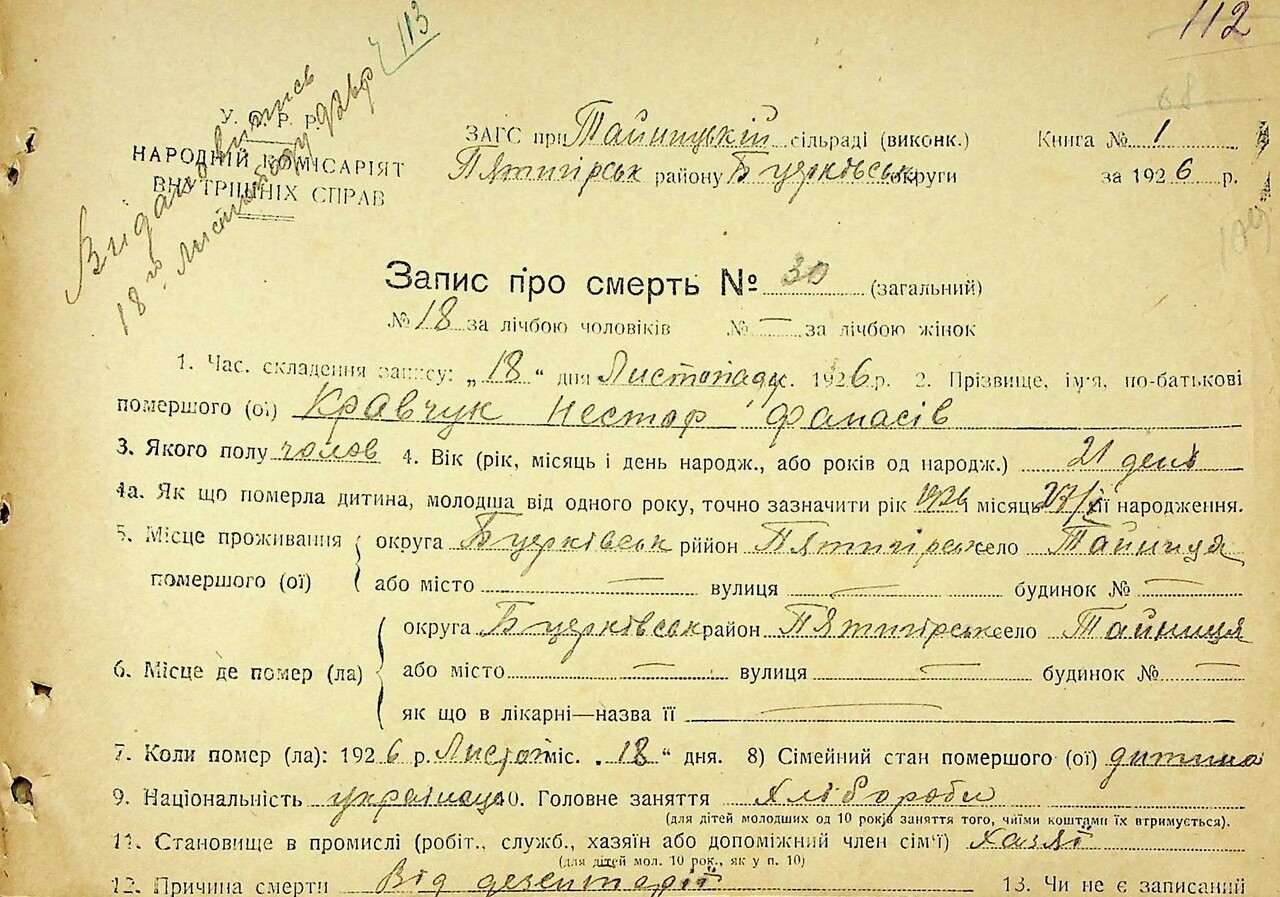 113
112
68
Видано випись
18го Листопаду 926р
У. С. Р. Р.
НАРОДНІЙ КОМІСАРІЯТ
ВНУТРІШНІХ СПРАВ
ЗАГС при Тайницькій сільраді (виконк.)
Пятигірськ району Бцерківськ округи
Книга № 1
за 1926 р.
Запис про смерть № 30 (загальний)
№ 18 за лічбою чоловіків № — за лічбою жінок
1. Час. складення запису: „ 18 “ дня Листопаду с. 1926 р. 2. Прізвище, ім'я, по-батькові
помершого (ої) Кравчук Нестор Фанасів
3. Якого полу чолов 4. Вік (рік, місяць і день народж., або років од народж.) 21 день
4а. Як що померла дитина, молодша від одного року, точно зазначити рік 1926 і місяць 27/X її народження.
5. Місце проживання помершого (ої) { округа Бцерківськ рййон Пятигірськ село Тайниця
або місто — вулиця — будинок № —
6. Місце де помер (ла) { округа Бцерківськ район Пятигірськ село Тайниця
або місто — вулиця — будинок № —
як що в лікарні—назва її —
7. Коли помер (ла): 1926 р. Листоп міс. „ 18 “ дня. 8) Сімейний стан помершого (ої) дитина
9. Національність українец 10. Головне заняття Хлібороби
(для дітей молодших од 10 років заняття того, чиїми коштами їх втримується).
11. Становище в промислі (робіт., служб., хазяїн або допоміжний член сім'ї) хазяї
(для дітей мол. 10 рок., як у п. 10)
12. Причина смерти Від дезентарії 13. Чи не є записаний